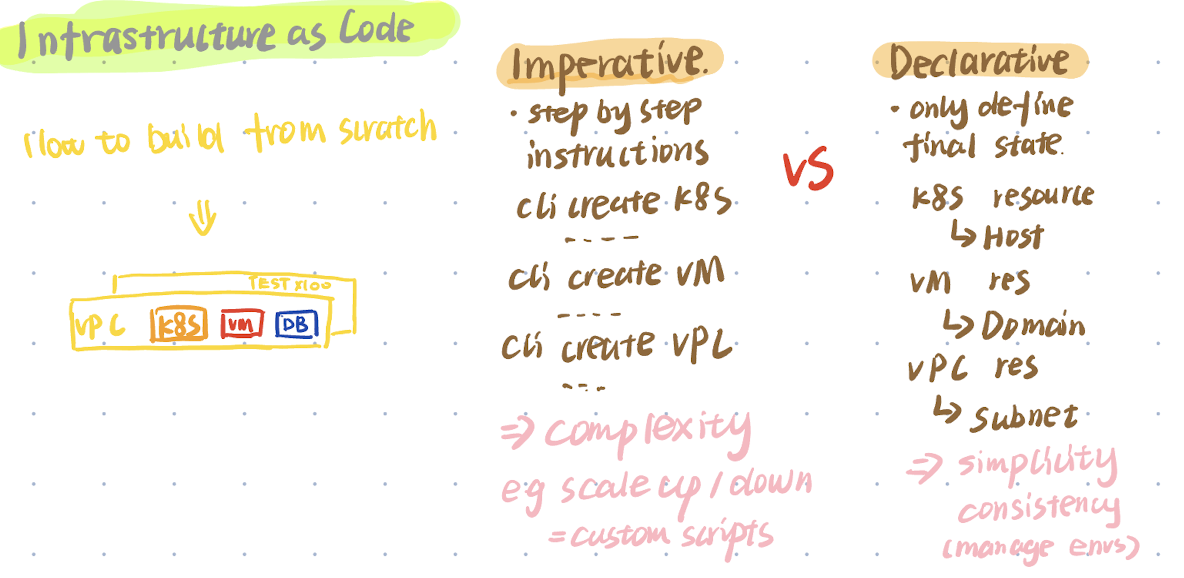 Infrastructure as Code
How to build from scratch
TEST x100
VPC K8S VM DB
Imperative.
• step by step
instructions
cli create K8S
----
cli create VM
----
cli create VPC
---
⇒ complexity
eg scale up / down
= custom scripts
VS
Declarative
• only define
final state.
K8S resource
↳ Host
VM res
↳ Domain
VPC res
↳ Subnet
⇒ simplicity
consistency
(manage envs)